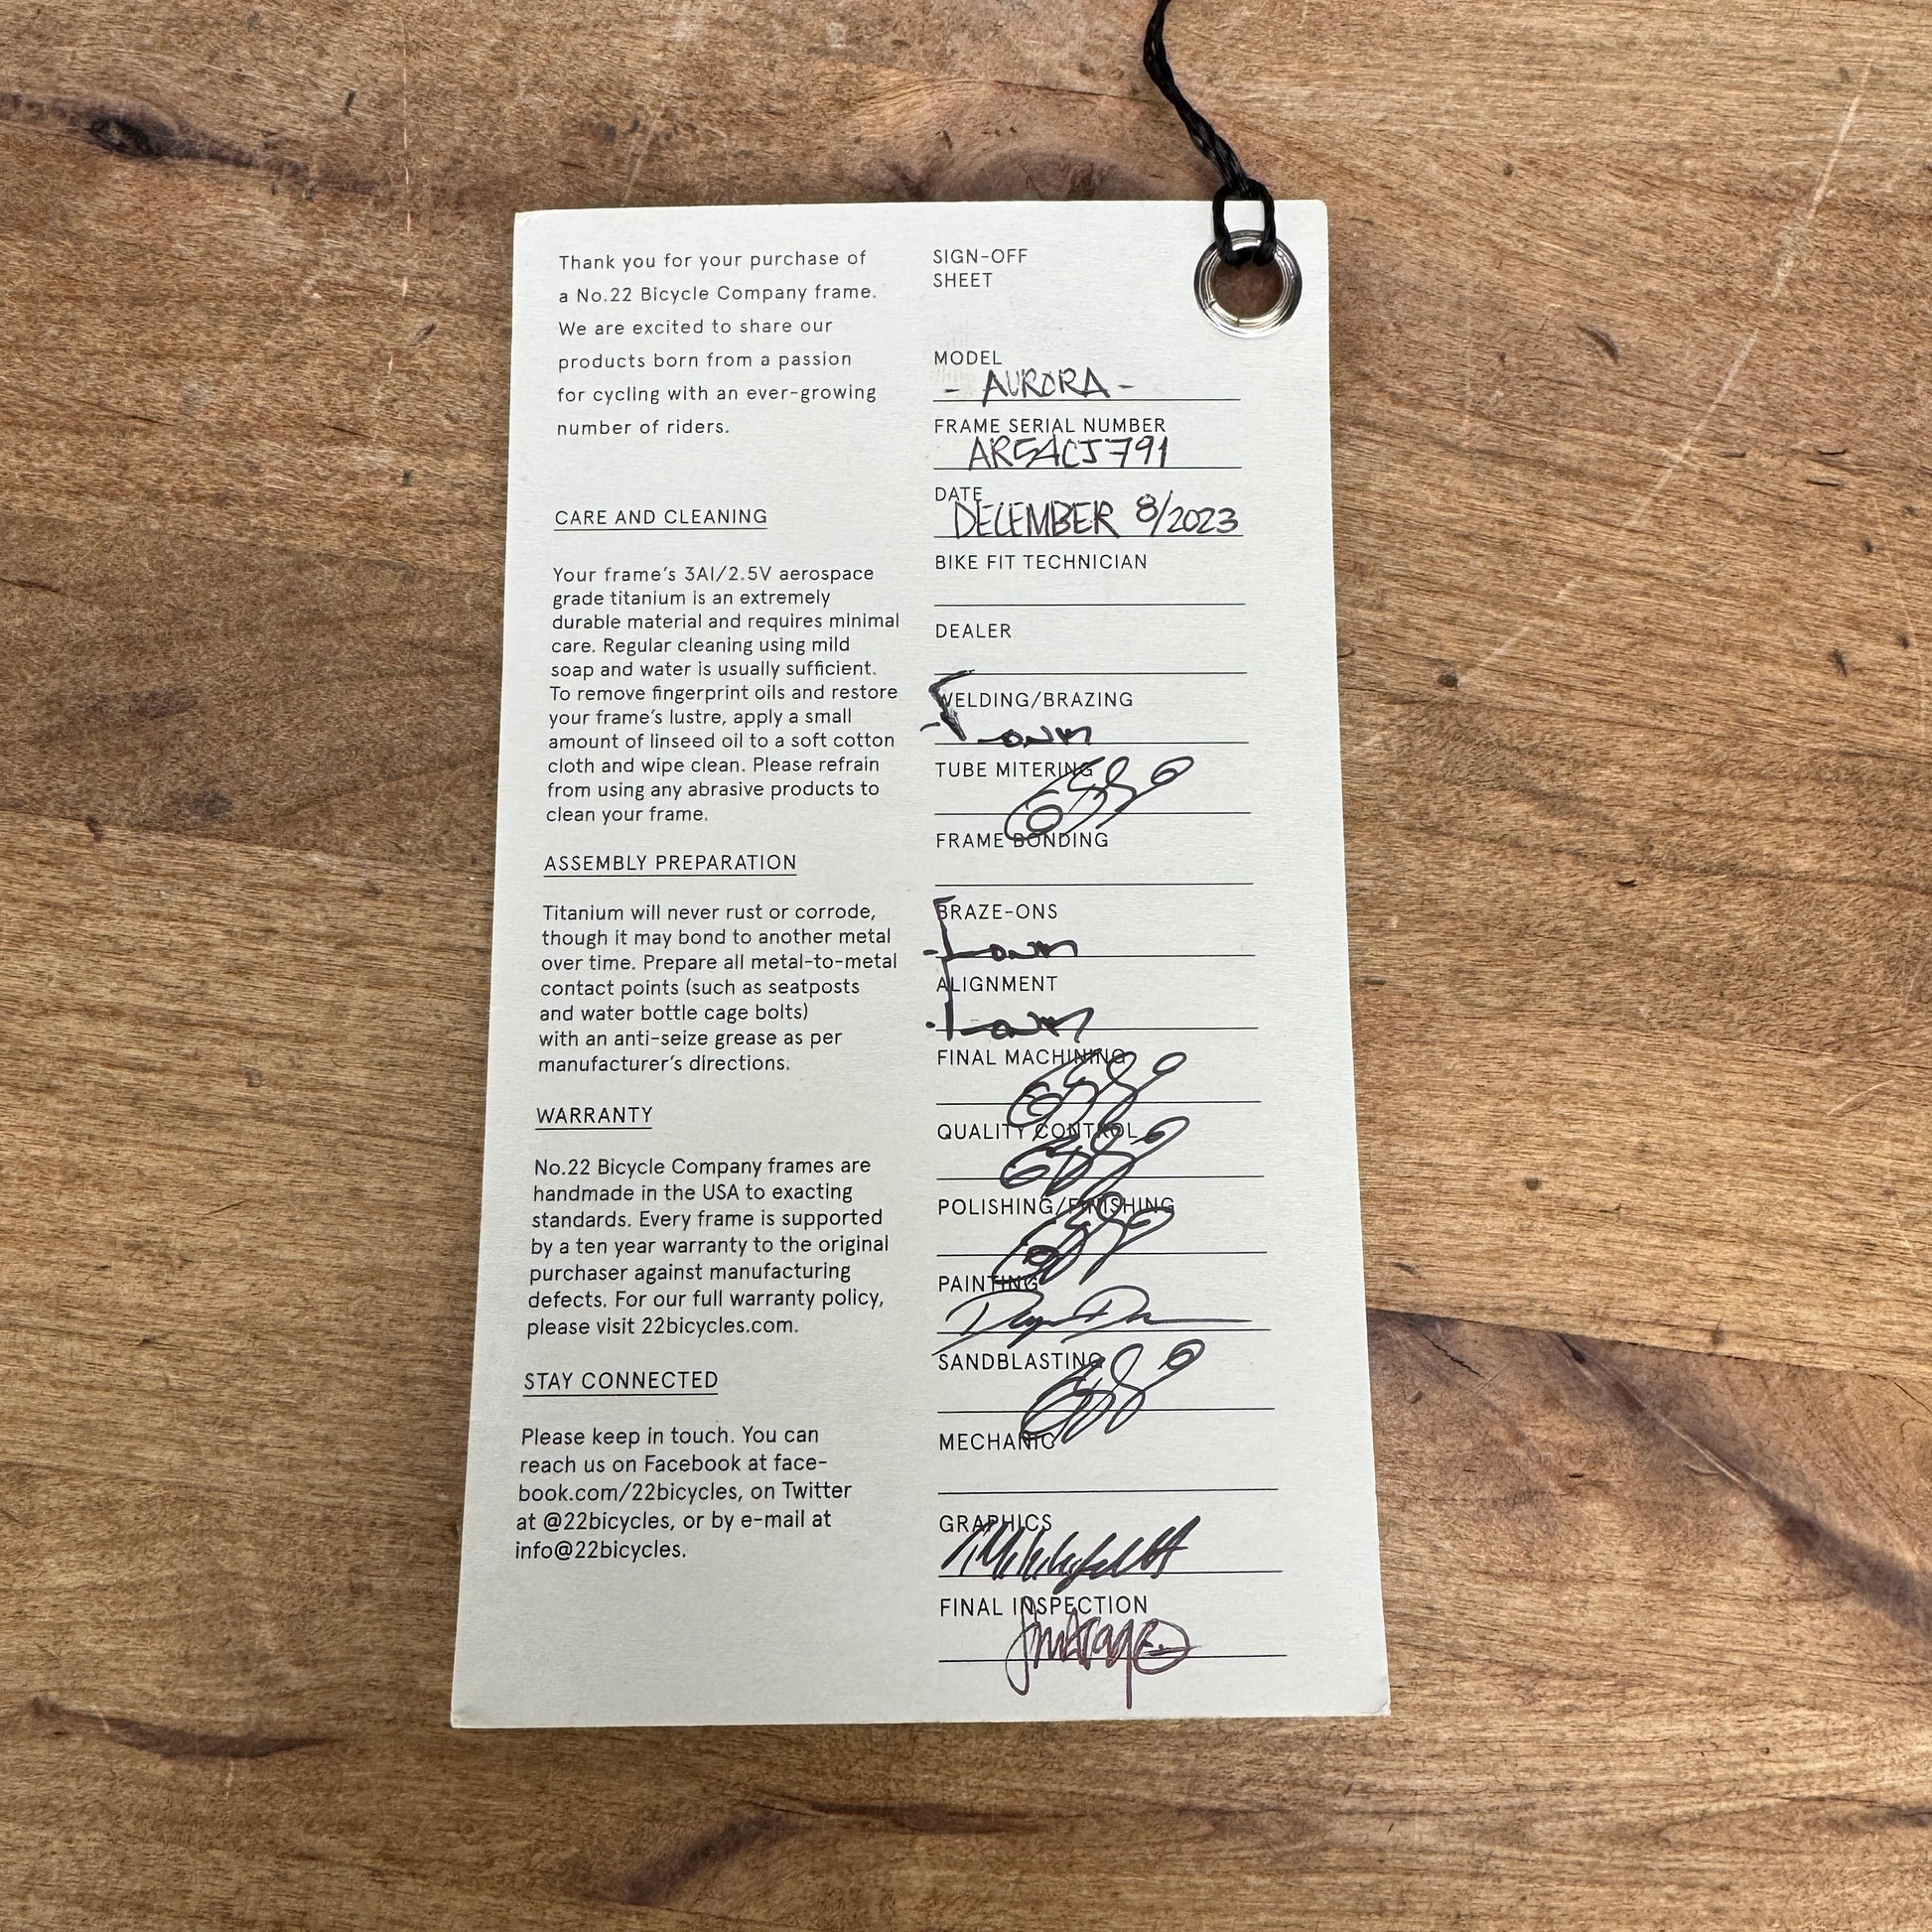 Thank you for your purchase of
a No.22 Bicycle Company frame.
We are excited to share our
products born from a passion
for cycling with an ever-growing
number of riders.
CARE AND CLEANING
Your frame's 3Al/2.5V aerospace
grade titanium is an extremely
durable material and requires minimal
care. Regular cleaning using mild
soap and water is usually sufficient.
To remove fingerprint oils and restore
your frame's lustre, apply a small
amount of linseed oil to a soft cotton
cloth and wipe clean. Please refrain
from using any abrasive products to
clean your frame.
ASSEMBLY PREPARATION
Titanium will never rust or corrode,
though it may bond to another metal
over time. Prepare all metal-to-metal
contact points (such as seatposts
and water bottle cage bolts)
with an anti-seize grease as per
manufacturer's directions.
WARRANTY
No.22 Bicycle Company frames are
handmade in the USA to exacting
standards. Every frame is supported
by a ten year warranty to the original
purchaser against manufacturing
defects. For our full warranty policy,
please visit 22bicycles.com.
STAY CONNECTED
Please keep in touch. You can
reach us on Facebook at face-
book.com/22bicycles, on Twitter
at @22bicycles, or by e-mail at
info@22bicycles.
SIGN-OFF
SHEET
MODEL
- AURORA -
FRAME SERIAL NUMBER
AR54CJ791
DATE
DECEMBER 8/2023
BIKE FIT TECHNICIAN
DEALER
WELDING/BRAZING
TUBE MITERING
FRAME BONDING
BRAZE-ONS
ALIGNMENT
FINAL MACHINING
QUALITY CONTROL
POLISHING/FINISHING
PAINTING
SANDBLASTING
MECHANIC
GRAPHICS
FINAL INSPECTION